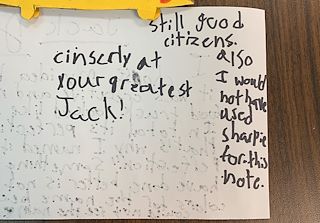 still good
citizens.
also
I would
not have
used
sharpie
for this
note.
cinserly at
your greatest
Jack!